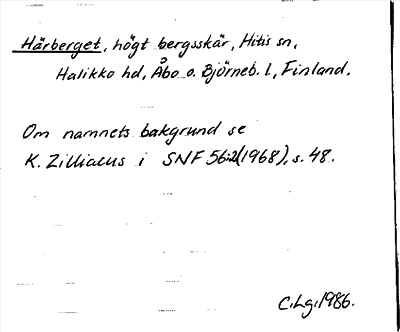 Härberget, högt bergsskär, Hitis sn,
Halikko hd, Åbo o. Björneb. l, Finland.
Om namnets bakgrund se
K. Zilliacus i SNF 56:2(1968), s. 48.
C.Lg.1986.